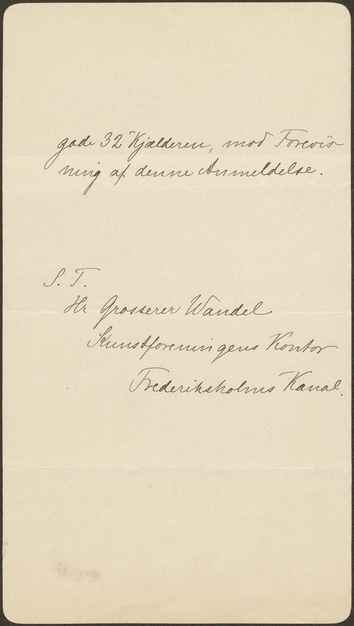 gade 32 Kjælderen, mod Forevis-
ning af denne Anmeldelse.
S. T.
Hr Grosserer Wandel
Kunstforeningens Kontor
Frederiksholms Kanal.